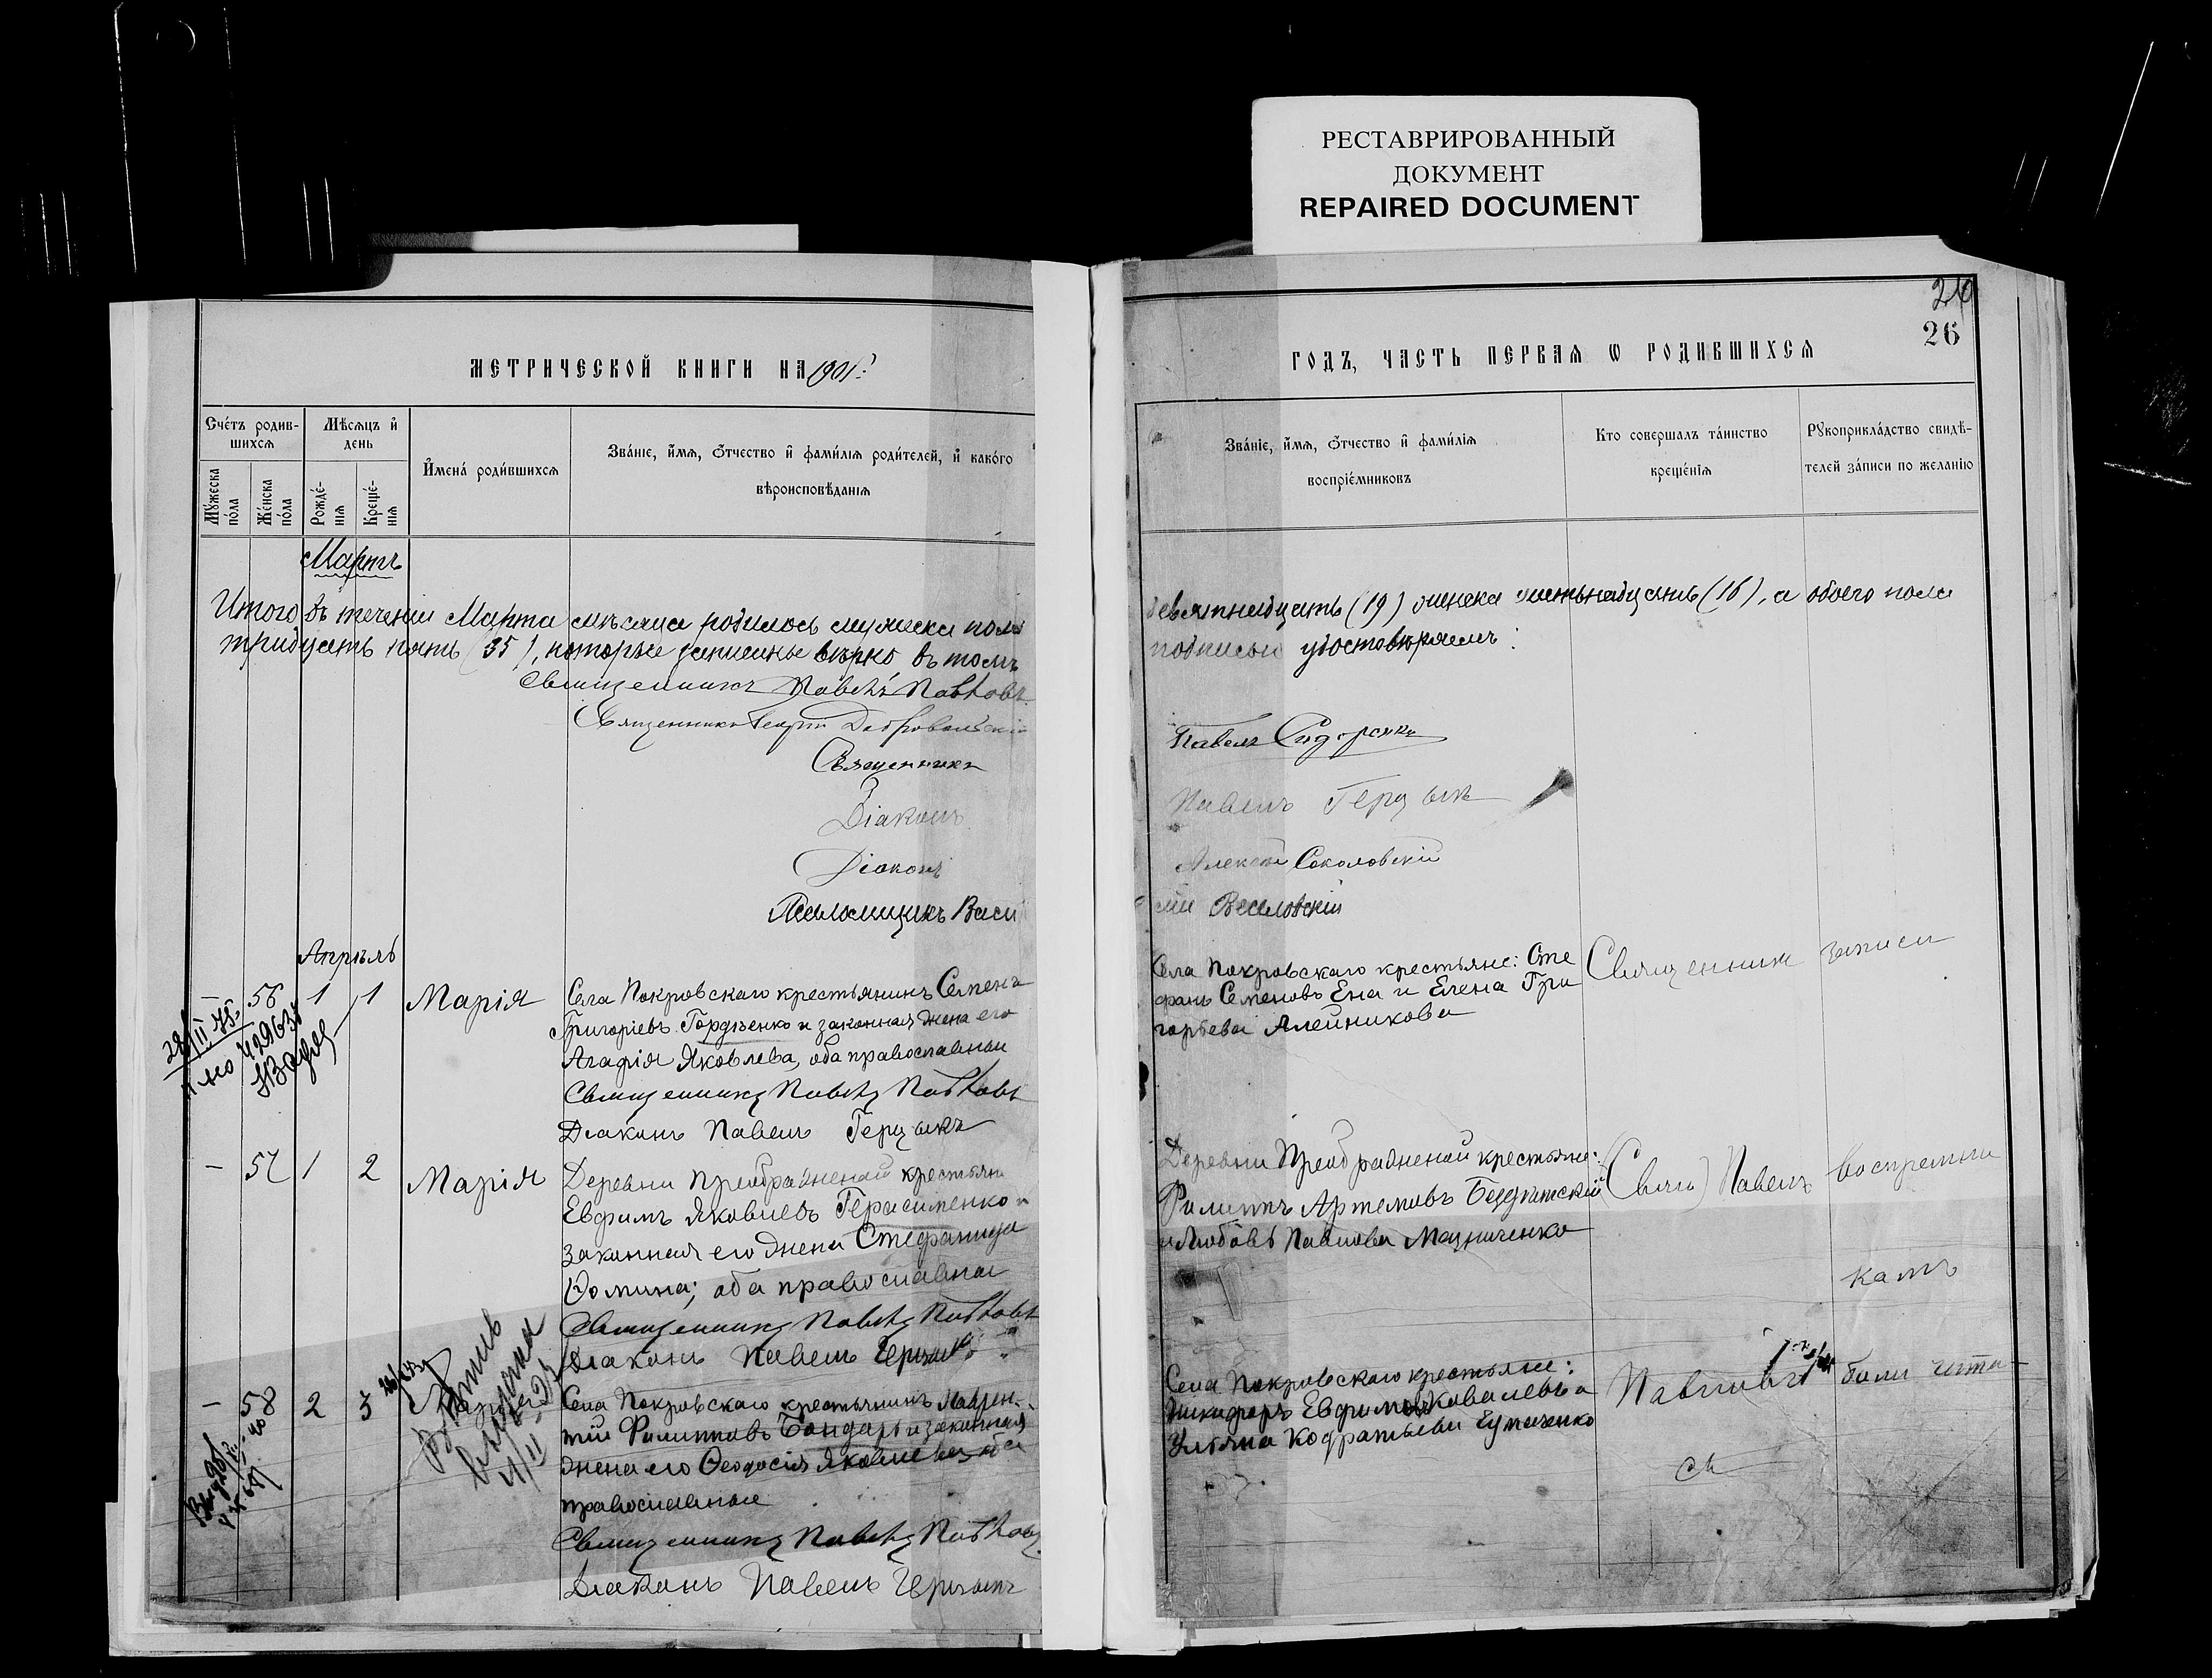 РЕСТАВРИРОВАННЫЙ
ДОКУМЕНТ
REPAIRED DOCUMENT
МЕТРИЧЕСКОЙ КНИГИ НА 1901
Сче́тъ родив-
шихсѧ
Мѣсѧцъ и҆
день
Мꙋ́жеска
по́ла
Же́нска
по́ла
Рожде́-
нїѧ
Креще́-
нїѧ
И҆мена̀ роди́вшихсѧ
Зва́нїе, и҆́мѧ, ѻ҆́тчество и҆ фами́лїѧ роди́телей, и҆ како́гѡ
вѣроисповѣ́данїѧ
Мартъ
Итого въ теченіи Марта мѣсяца родилось мужеска пола
тридцать пять (35), которые записаны вѣрно въ томъ
Священникъ Павелъ Павловъ
Священникъ Георгій Добровольскій
Священникъ
Діаконъ
Діаконъ
Псаломщикъ Васи
Апрѣль
– 56 1 1 Марія
Села Покровскаго крестьянинъ Семенъ
Григоріевъ Гордѣенко и законная жена его
Агафія Яковлева, оба православные
Священникъ Павелъ Павловъ
Діаконъ Павелъ Герцыкъ
– 57 1 2 Марія
Деревни Преображенной крестьян
Евфимъ Яковлевъ Герасименко и
законная его жена Стефанида
Ѳомина; оба православные
Священникъ Павелъ Павловъ
Діаконъ Павелъ Герцыкъ
– 58 2 3
Села Покровскаго крестьянинъ Лаврен-
тій Филипповъ Бондарь и законная
жена его Ѳеодосія Яковлева, оба
православные
Священникъ Павелъ Павловъ
Діаконъ Павелъ Герцыкъ
26
26
ГОДЪ, ЧАСТЬ ПЕРВАЯ Ѡ РОДИВШИХСЯ
Зва́нїе, и҆́мѧ, ѻ҆́тчество и҆ фами́лїѧ
воспрїе́мниковъ
Кто совершалъ та́инство
креще́нїѧ
Рꙋкоприкла́дство свидѣ́-
телей за́писи по желанїю
девятнадцать (19) женска шестьнадцать (16), а обоего пола
подписью удостовѣряемъ:
Павелъ Сидоренко
Павелъ Герцыкъ
Алексѣй Соколовскій
лій Веселовскій
Села Покровскаго крестьяне: Сте
фанъ Семеновъ Ена и Елена Гри
горьева Алейникова
Священник
записи
Деревни Преображенной крестьяне:
Филиппъ Артемовъ
и Любовь Павлова
Павелъ
воспремни
камъ
Села Покровскаго крестьяне:
Никифоръ Евфимовъ Ковалевъ и
Ульяна Кодратьева
Павловъ
были чита